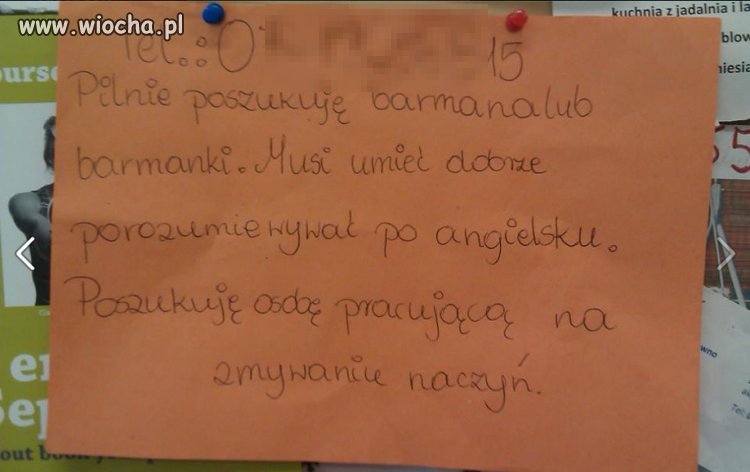 www.wiocha.pl
kuchnia z jadalnia i la
Tel.: 0 15
Pilnie poszukuję barmana lub
barmanki. Musi umieć dobrze
porozumiewywać po angielsku.
Poszukuję osobę pracującą na
zmywaniu naczyń.
ourse
er
Sep
out book